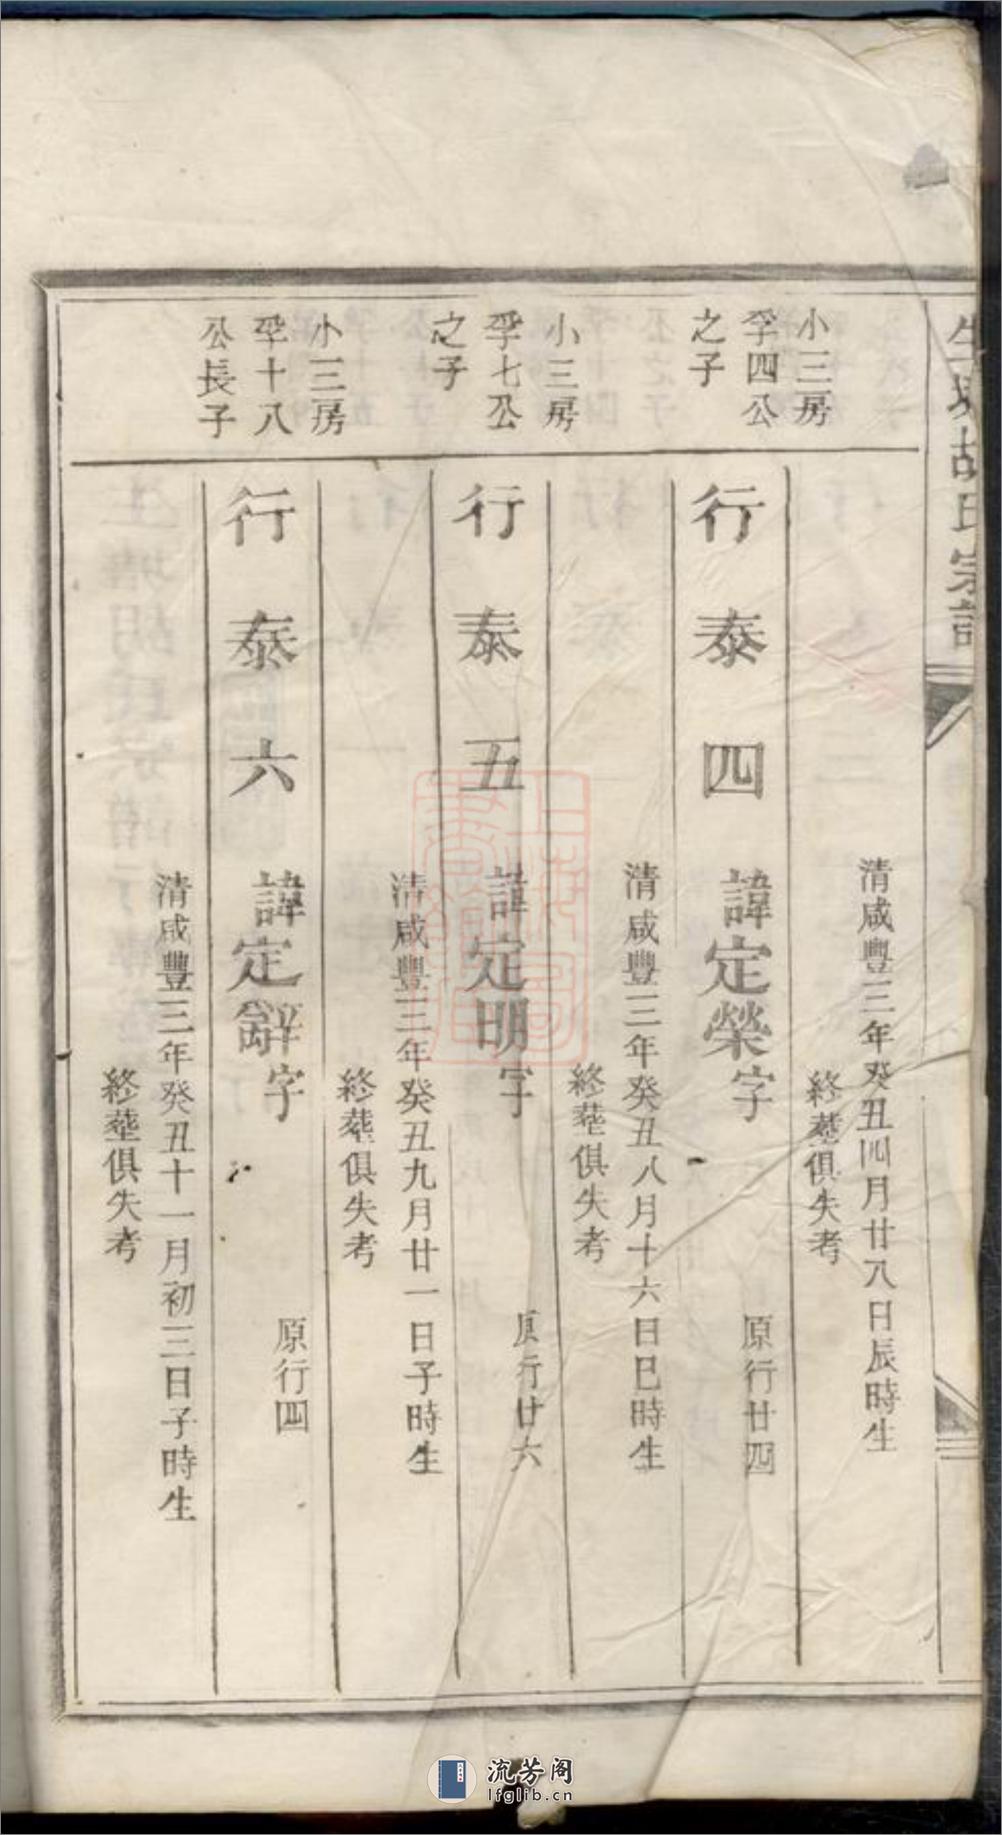 生塘胡氏宗譜
清咸豐三年癸丑四月廿八日辰時生
終塟俱失考
小三房
孚四公
之子
行泰四 諱定榮字 原行廿四
清咸豐三年癸丑八月十六日巳時生
終塟俱失考
小三房
孚七公
之子
行泰五 諱定明字 原行廿六
清咸豐三年癸丑九月廿一日子時生
終塟俱失考
小三房
孚十八
公長子
行泰六 諱定辭字 原行四
清咸豐三年癸丑十一月初三日子時生
終塟俱失考
上海圖書館藏
流芳阁
lfglib.cn